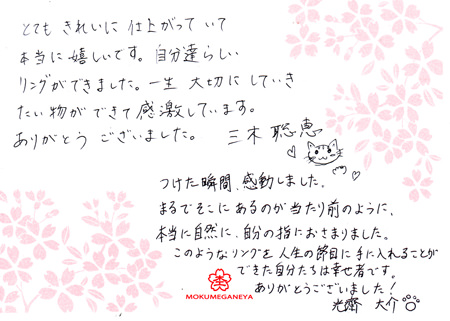 とても きれいに 仕上がって いて
本当に 嬉しいです。自分達らしい
リングができました。一生 大切に していき
たい物ができて 感激しています。
ありがとう ございました。 三木 聡恵
つけた瞬間、感動しました。
まるでそこに あるのが当たり前のように、
本当に自然に、自分の指におさまりました。
このようなリングを 人生の節目に 手に入れることが
できた自分たちは幸せ者です。
ありがとうございました!
光齋 大介
杢
MOKUMEGANEYA